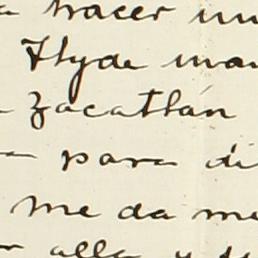 hacer un
Hyde man
Zacatlán
para di
me da me